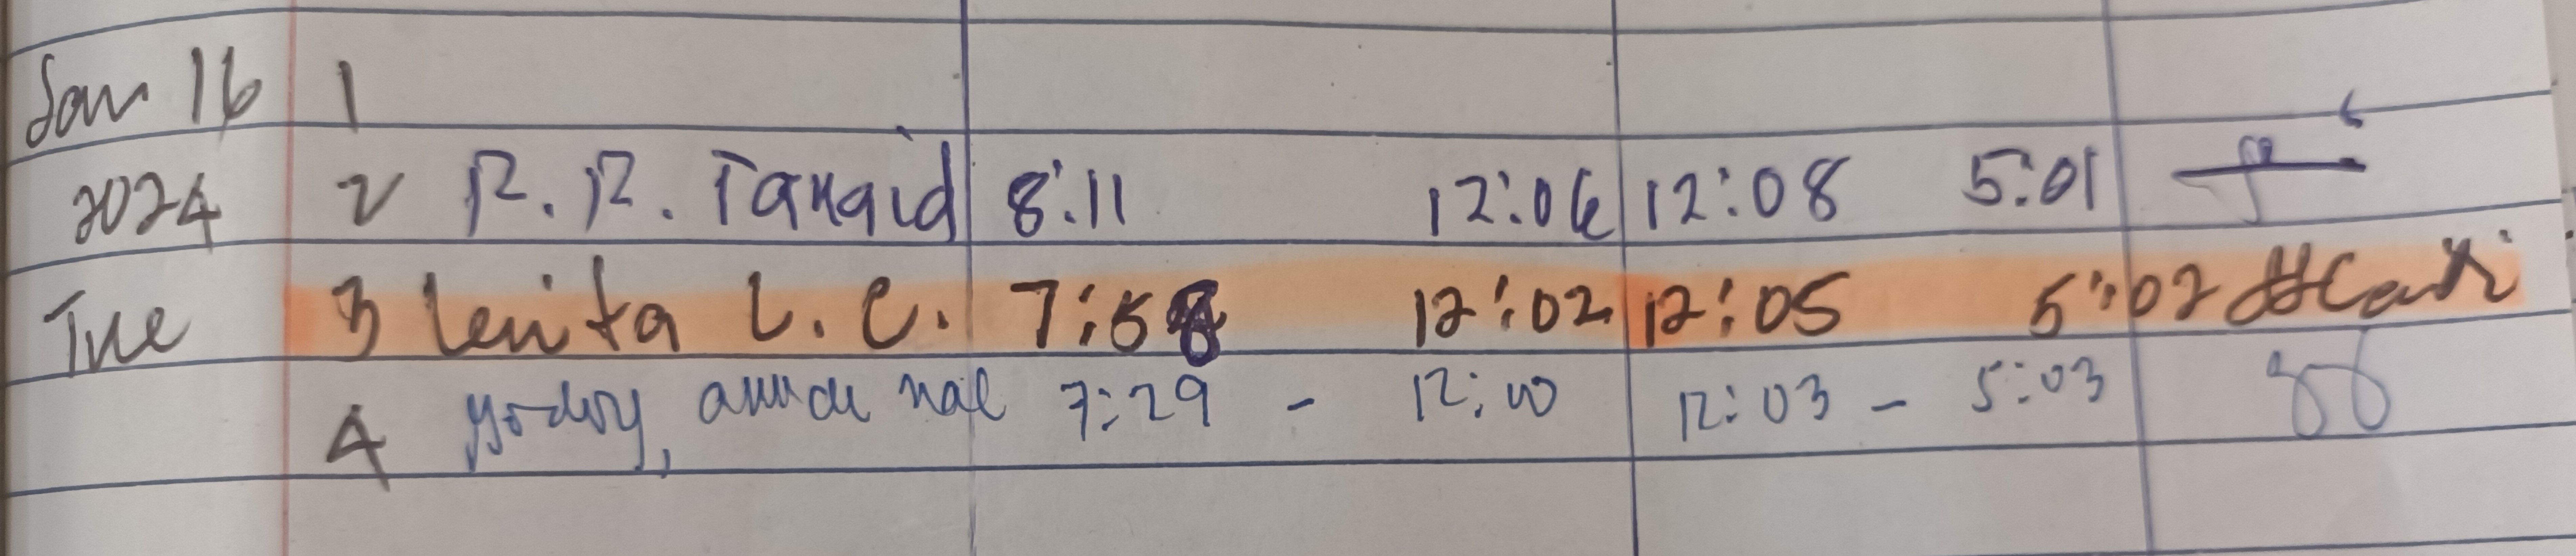 Jan 16 1
2024 2 R. R. Tanaid 8:11 12:06 12:08 5:01
Tue 3 Lenita L. C. 7:58 12:02 12:05 5:02
4 7:29 - 12:00 12:03 - 5:03